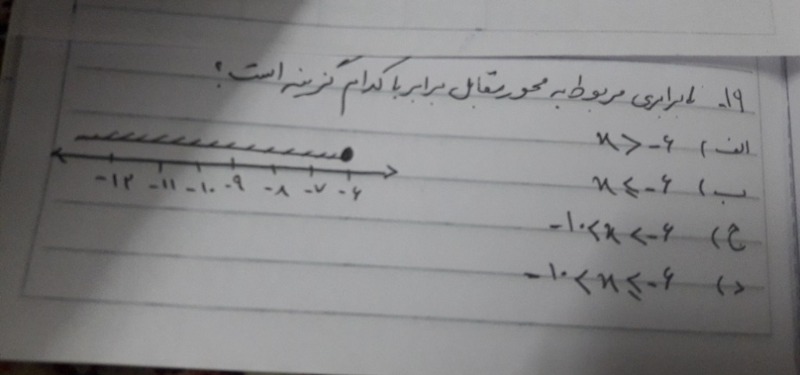 ۱۹- نابرابری مربوط به محور مقابل برابر با کدام گزینه است؟
الف) x > -۶
ب) x ≤ -۶
ج) -۱۰ < x < -۶
د) -۱۰ < x ≤ -۶
-۱۲ -۱۱ -۱۰ -۹ -۸ -۷ -۶